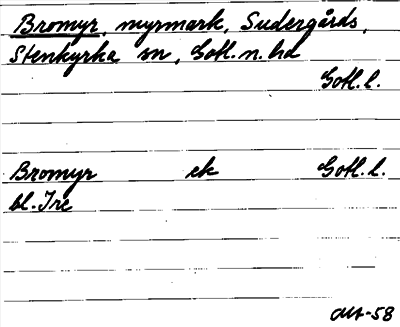 Bromyr, myrmark, Sudergårds,
Stenkyrka sn, Gotl. n. hd
Gotl. l.
Bromyr ek Gotl. l.
bl. Ire
-58